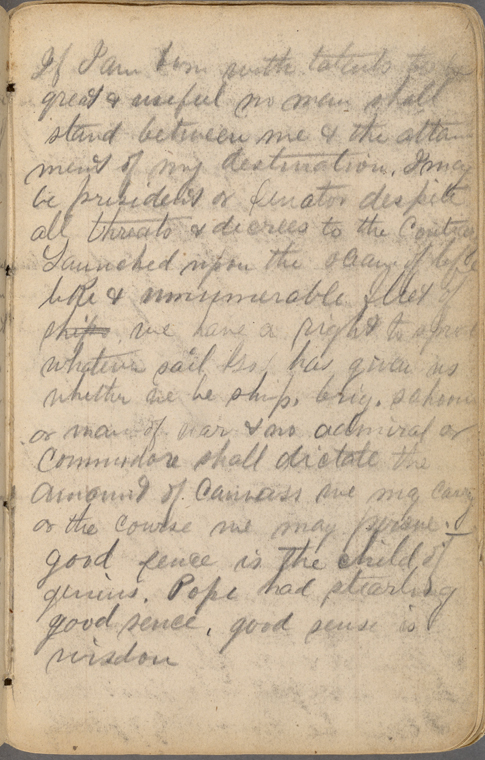 If I am born with talents to be
great & useful no man shall
stand between me & the attan
ment of my destination. I may
be president or senator despite
all threats & decrees to the Contra
Launched upon the ocean of life
like & unnumerable fleet of
ships we have a right to spread
whatever sail has given us
whether we be ship, brig, schoon
or man of war & no admiral or
Commodore shall dictate the
amount of Canvass we may carry
or the course we may pursue.
good sence is the child of
genius. Pope had stearling
good sence, good sense is
wisdom